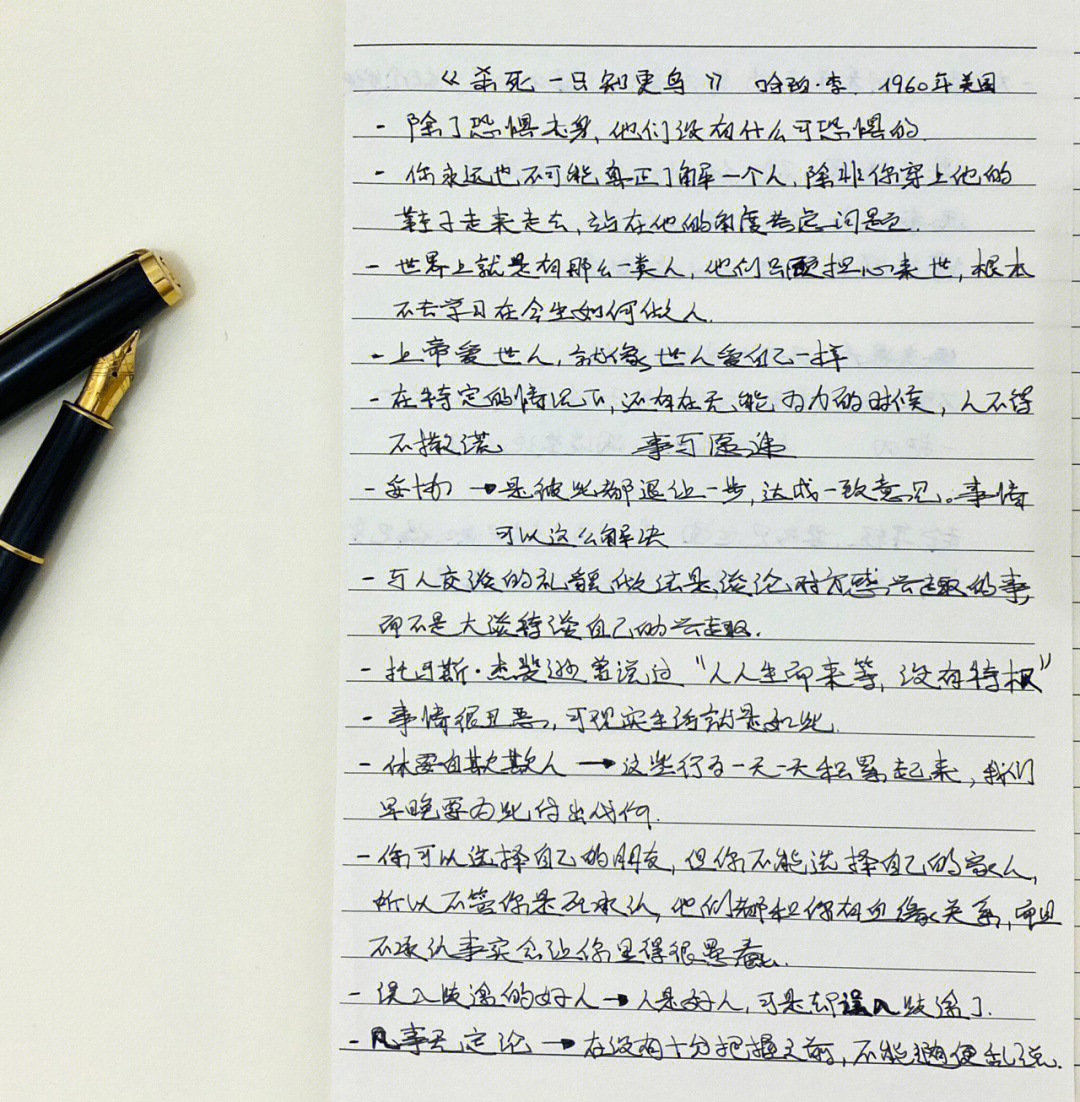 《杀死一只知更鸟》 哈珀·李. 1960年美国
- 除了恐惧本身, 他们没有什么可恐惧的.
- 你永远也不可能真正了解一个人, 除非你穿上他的
鞋子走来走去, 站在他的角度考虑问题.
- 世界上就是有那么一类人, 他们只顾担心来世, 根本
不去学习在今生如何做人.
- 上帝爱世人, 就像世人爱自己一样
- 在特定的情况下, 还有在无能为力的时候, 人不得
不撒谎. 事与愿违
- 妥协 → 是彼此都退让一步, 达成一致意见。事情
可以这么解决
- 与人交谈的礼貌做法是, 谈论对方感兴趣的事,
而不是大谈特谈自己的兴趣.
- 托马斯·杰斐逊曾说过 "人人生而来等, 没有特权"
- 事情很丑恶, 可现实生活就是如此.
- 休要自欺欺人 → 这些行为一天一天积累起来, 我们
早晚要为此付出代价.
- 你可以选择自己的朋友, 但你不能选择自己的家人,
所以不管你是否承认, 他们都和你有血缘关系, 而且
不承认事实会让你显得很愚蠢.
- 误入歧途的好人 → 人是好人, 可是却误入歧途了.
- 凡事无定论 → 在没有十分把握之前, 不能随便乱说.